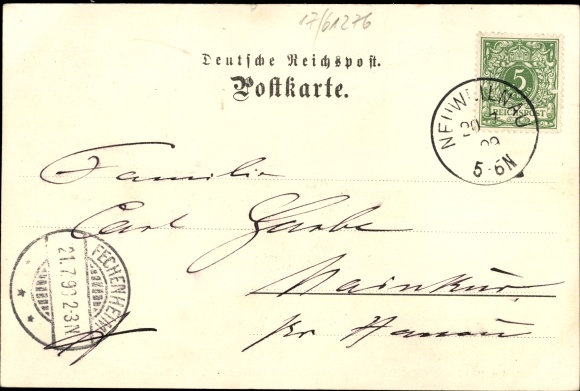 17/61276
Deutsche Reichspost.
Postkarte.
5
REICHSPOST
NEUWEILNAU
20 7
99
5-6N
Familie
Carl Garbe
Mainkur
pr Hanau
FECHENHEIM
21.7.99.2-3N